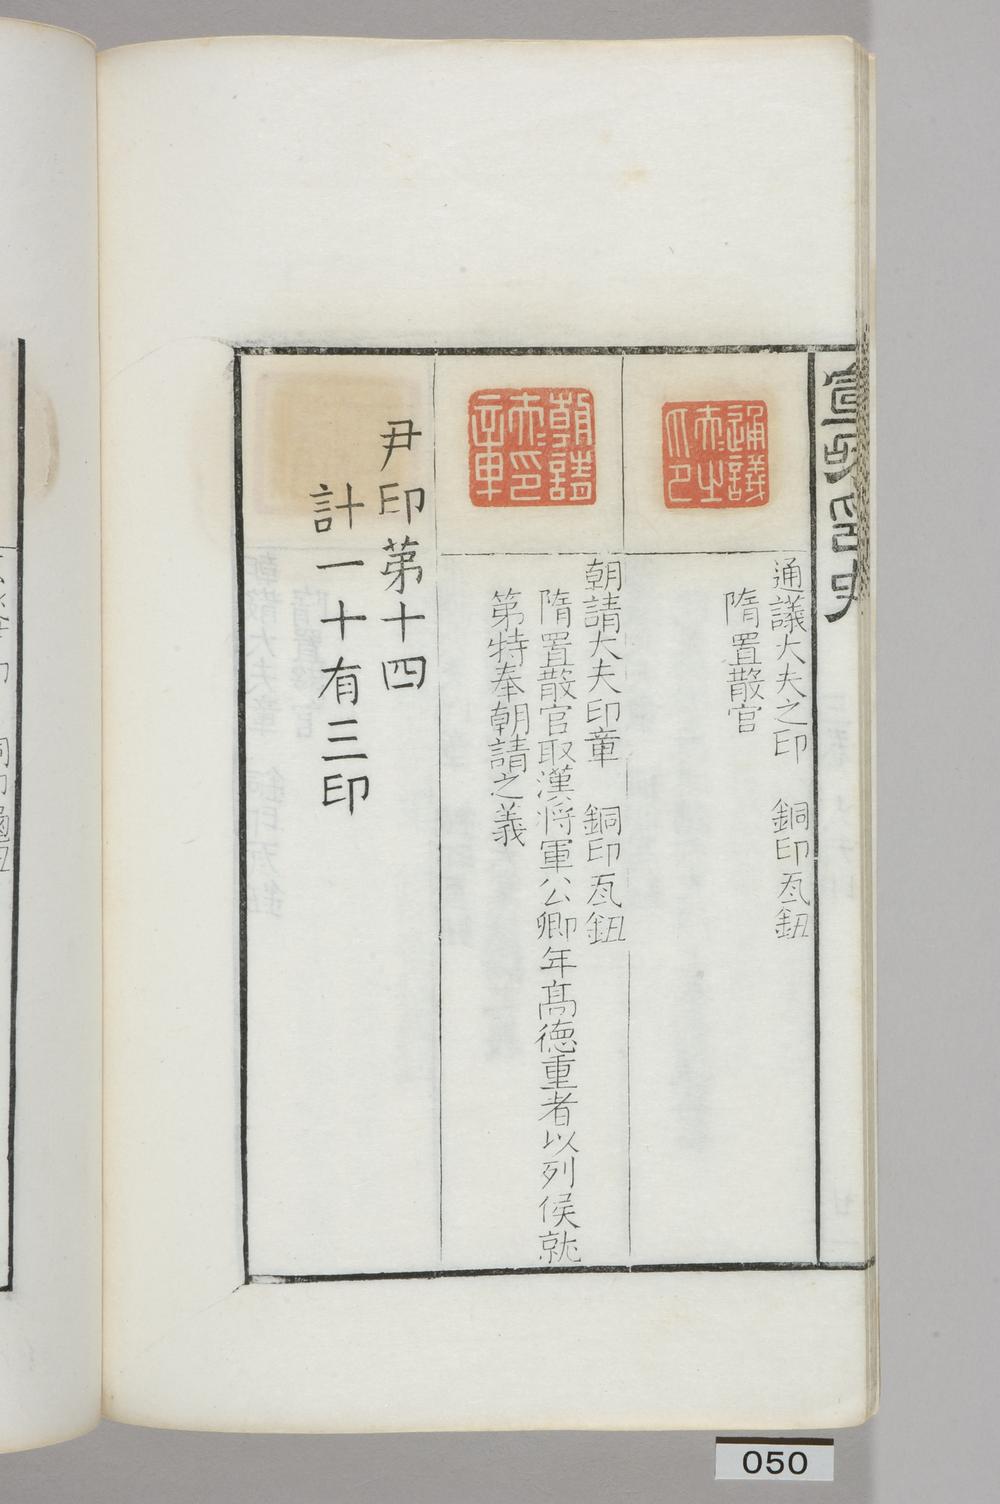 宣和印史
通議大夫之印
通議大夫之印　銅印瓦鈕
隋置散官
朝請大夫印章
朝請大夫印章　銅印瓦鈕
隋置散官取漢將軍公卿年高德重者以列侯就
第特奉朝請之義
尹印第十四
計一十有三印
050